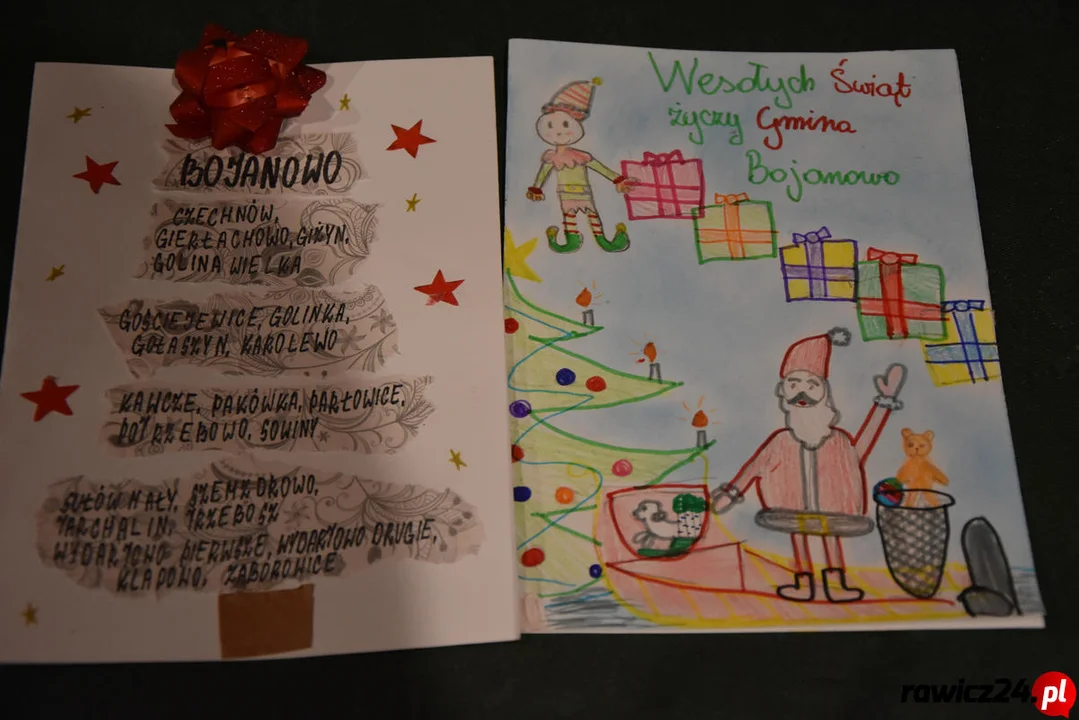 BOJANOWO
CZECHNÓW,
GIERŁACHOWO, GIŻYN,
GOLINA WIELKA
GOŚCIEJEWICE, GOLINKA,
GOŁASZYN, KAROLEWO
KAWCZE, PAKÓWKA, PARŁOWICE,
POTRZEBOWO, SOWINY
SUŁÓW MAŁY, SZEMZDROWO,
TARCHALIN, TRZEBOSZ
WYDARTOWO PIERWSZE, WYDARTOWO DRUGIE,
KLAPOWO, ZABOROWICE
Wesołych Świąt
życzy Gmina
Bojanowo
rawicz24.pl